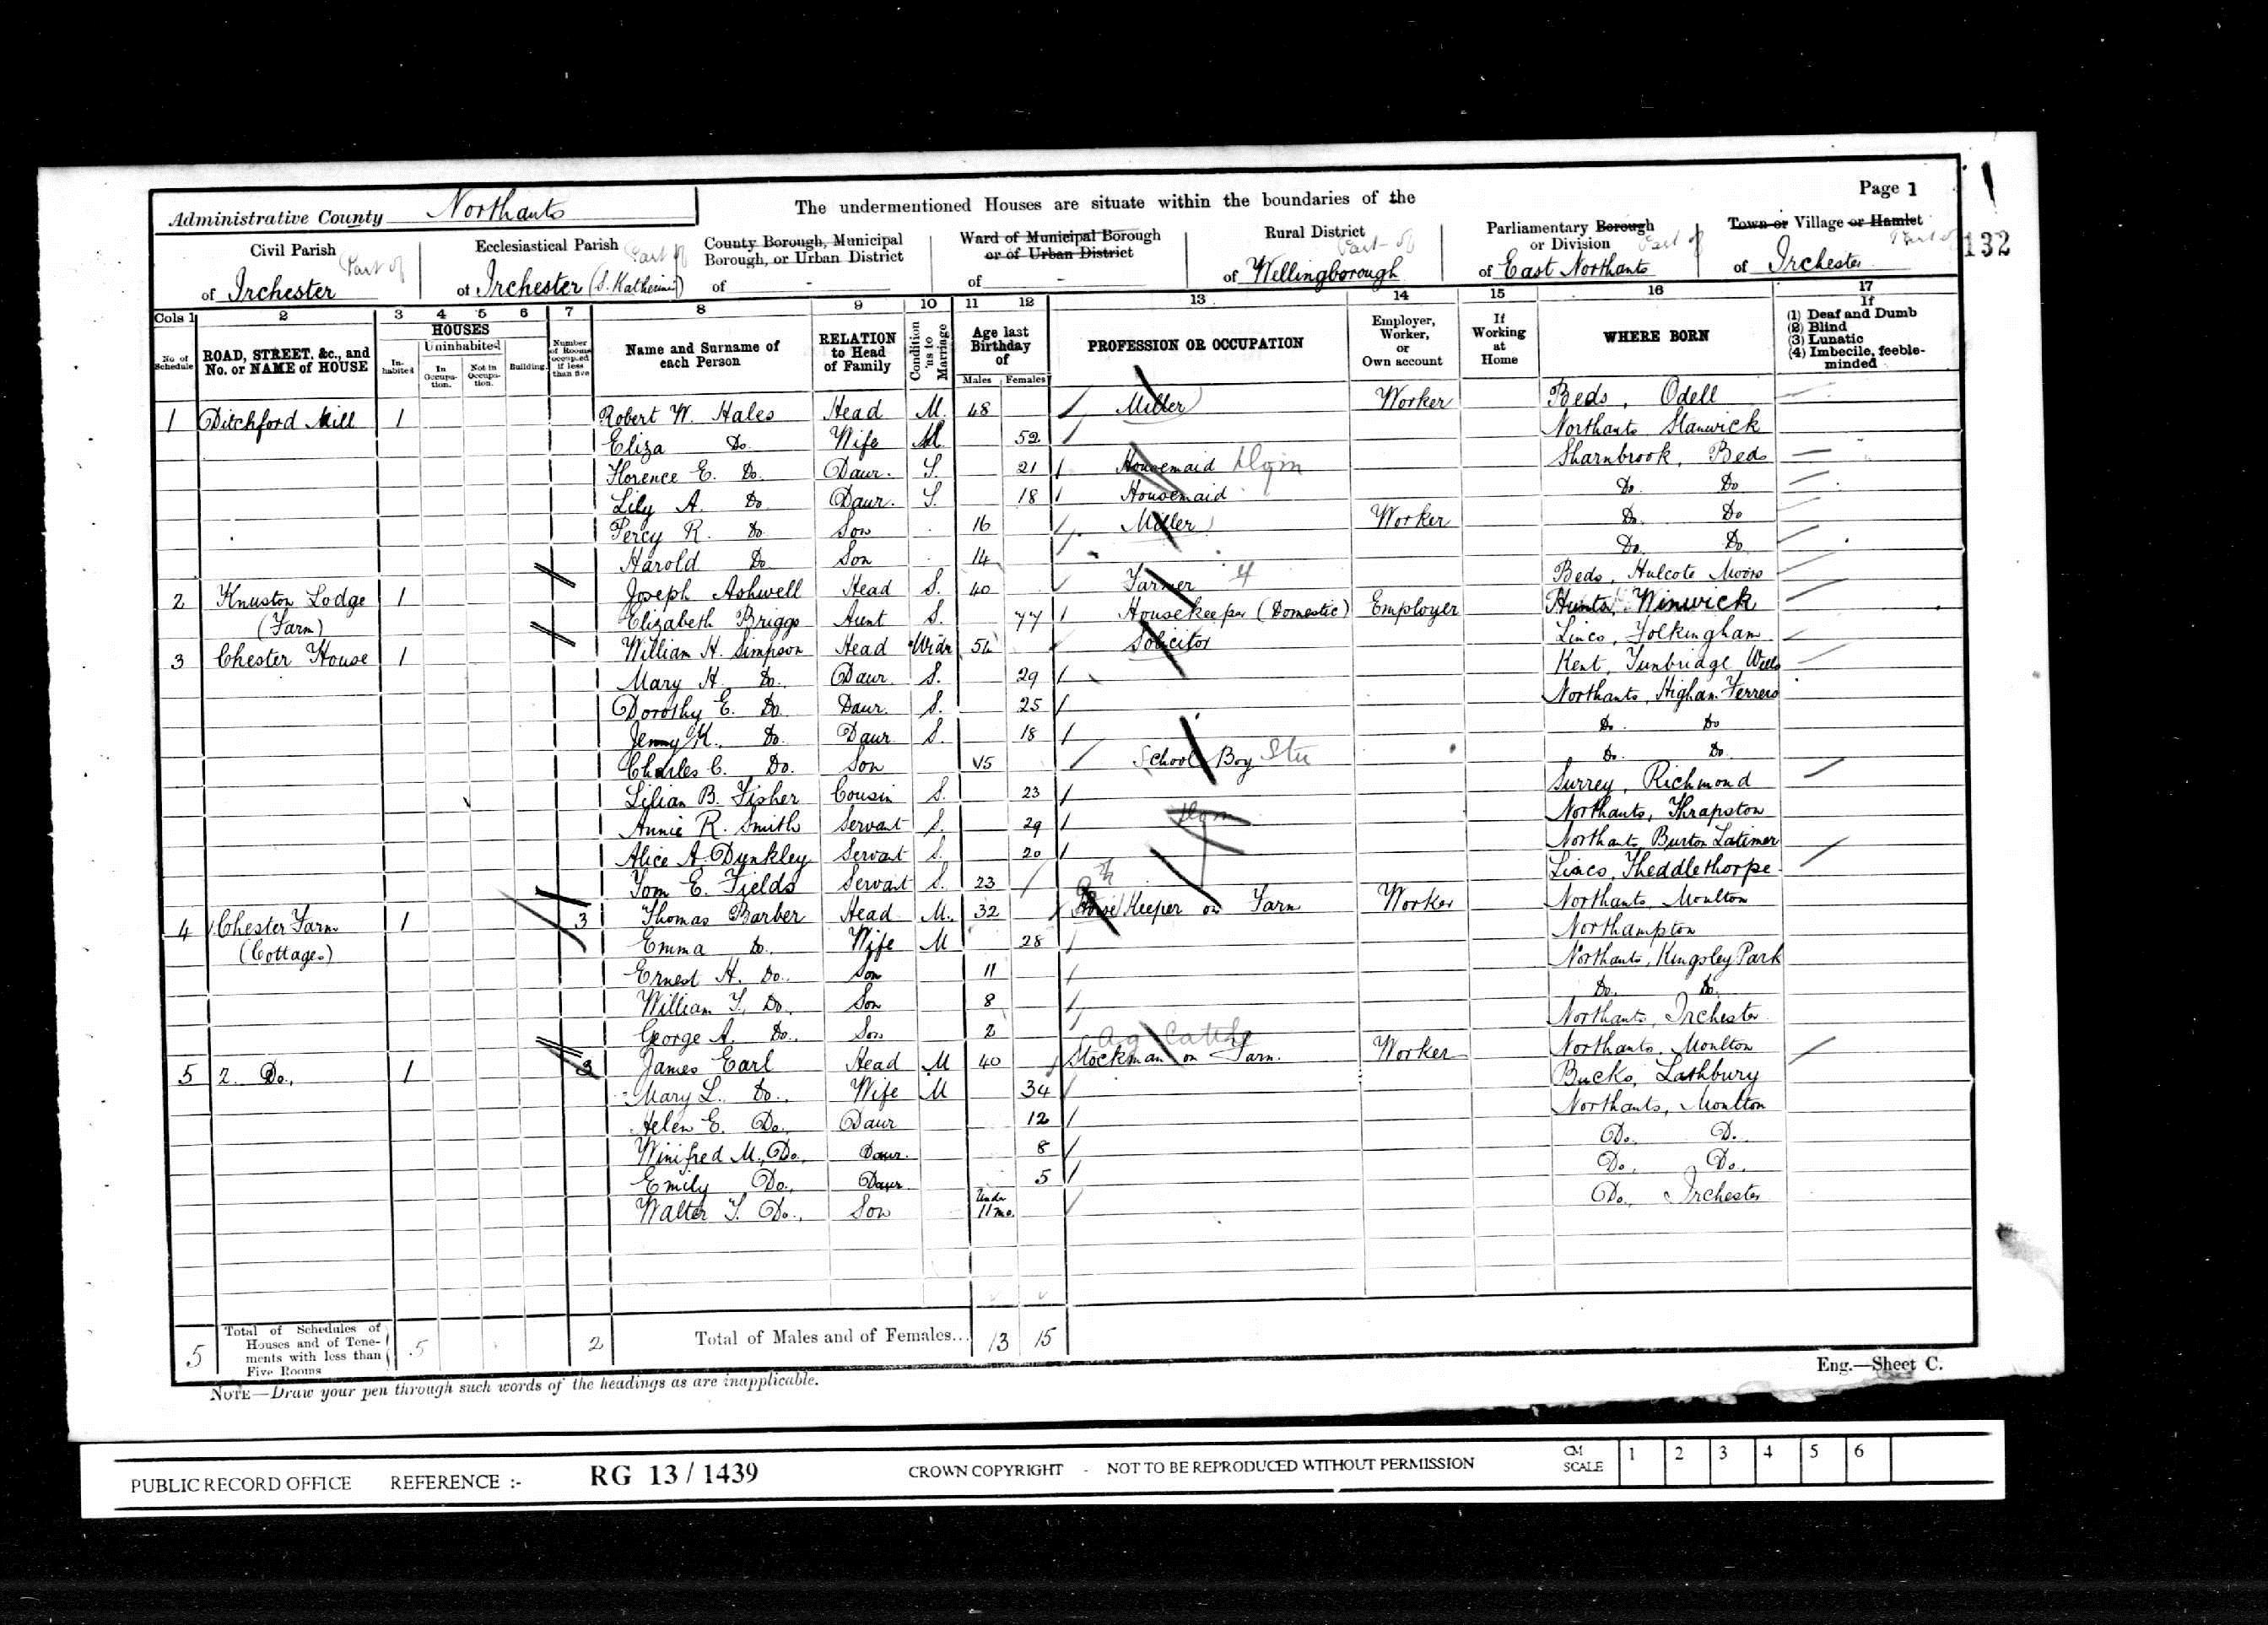 Page 1
Administrative County Northants
The undermentioned Houses are situate within the boundaries of the
132
Civil Parish Part of
of Irchester
Ecclesiastical Parish Part of
of Irchester (S. Katherine)
County Borough, Municipal
Borough, or Urban District
of -
Ward of Municipal Borough
or of Urban District
of -
Rural District
Part of
of Wellingborough
Parliamentary Borough
or Division Part of
of East Northants
Town or Village or Hamlet
Part of
of Irchester
Cols 1 2 3 4 5 6 7 8 9 10 11 12 13 14 15 16 17
No of Schedule
ROAD, STREET, &c., and No. or NAME of HOUSE
HOUSES
In-habited
Uninhabited
In Occupa-tion.
Not in Occupa-tion.
Building.
Number of Rooms occupied if less than five
Name and Surname of each Person
RELATION to Head of Family
Condition as to Marriage
Age last Birthday of
Males Females
PROFESSION OR OCCUPATION
Employer, Worker, or Own account
If Working at Home
WHERE BORN
If
(1) Deaf and Dumb
(2) Blind
(3) Lunatic
(4) Imbecile, feeble-minded
1 Ditchford Mill 1 Robert W. Hales Head M. 48 Miller Worker Beds, Odell
Eliza Do Wife M 52 Northants Stanwick
Florence E. Do. Daur. S. 21 Housemaid Dom Sharnbrook, Beds
Lily A. Do Daur. S. 18 Housemaid Do. Do
Percy R. Do Son 16 Miller Worker Do. Do
Harold Do Son 14 Do. Do
2 Knuston Lodge 1 Joseph Ashwell Head S. 40 Farmer Beds, Hulcote Moors
(Farm) Elizabeth Briggs Aunt S. 77 Housekeeper (Domestic) Employer Hunts, Winwick
3 Chester House 1 William H. Simpson Head Widr 54 Solicitor Lincs, Folkingham
Mary H. Do. Daur. S. 29 Kent, Tunbridge Wells
Dorothy E. Do Daur. S. 25 Northants, Higham Ferrers
Jenny K. Do. Daur S. 18 Do. Do
Charles C. Do. Son 15 School Boy Stu Do. Do.
Lilian B. Fisher Cousin S. 23 Surrey, Richmond
Annie R. Smith Servant S. 29 Dom Northants, Thrapston
Alice A. Dunkley Servant S. 20 Northants, Burton Latimer
Tom E. Fields Servant S. 23 Lincs, Theddlethorpe
4 1 Chester Farm 1 3 Thomas Barber Head M. 32 Horse Keeper on Farm Worker Northants, Moulton
(Cottages) Emma Do. Wife M 28 Northampton
Ernest H. Do. Son 11 Northants, Kingsley Park
William T. Do. Son 8 Do. Do.
George A. Do. Son 2 Northants, Irchester
Ag Cattle
5 2. Do. 1 3 James Earl Head M 40 Stockman on Farm. Worker Northants, Moulton
Mary L. Do. Wife M 34 Bucks, Lathbury
Helen E. Do. Daur 12 Northants, Moulton
Winifred M. Do. Daur. 8 Do. D.
Emily Do. Daur. 5 Do. Do.
Walter T. Do. Son Under 11 mo. Do. Irchester
5 Total of Schedules of Houses and of Tene-ments with less than Five Rooms 5 2 Total of Males and of Females... 13 15
Eng.—Sheet C.
NOTE—Draw your pen through such words of the headings as are inapplicable.
PUBLIC RECORD OFFICE REFERENCE :- RG 13 / 1439 CROWN COPYRIGHT - NOT TO BE REPRODUCED WITHOUT PERMISSION CM SCALE 1 2 3 4 5 6